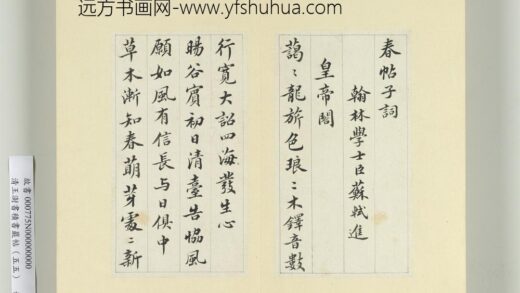 远方书画网-www.yfshuhua.com
春帖子詞
翰林學士臣蘇軾進
皇帝閣
藹〻龍旂色琅〻木鐸音數
行寬大詔四海發生心
暘谷賓初日清臺告協風
願如風有信長與日俱中
草木漸知春萌芽處〻新
故書000775N000000000
清王澍書積書巖帖(五五)